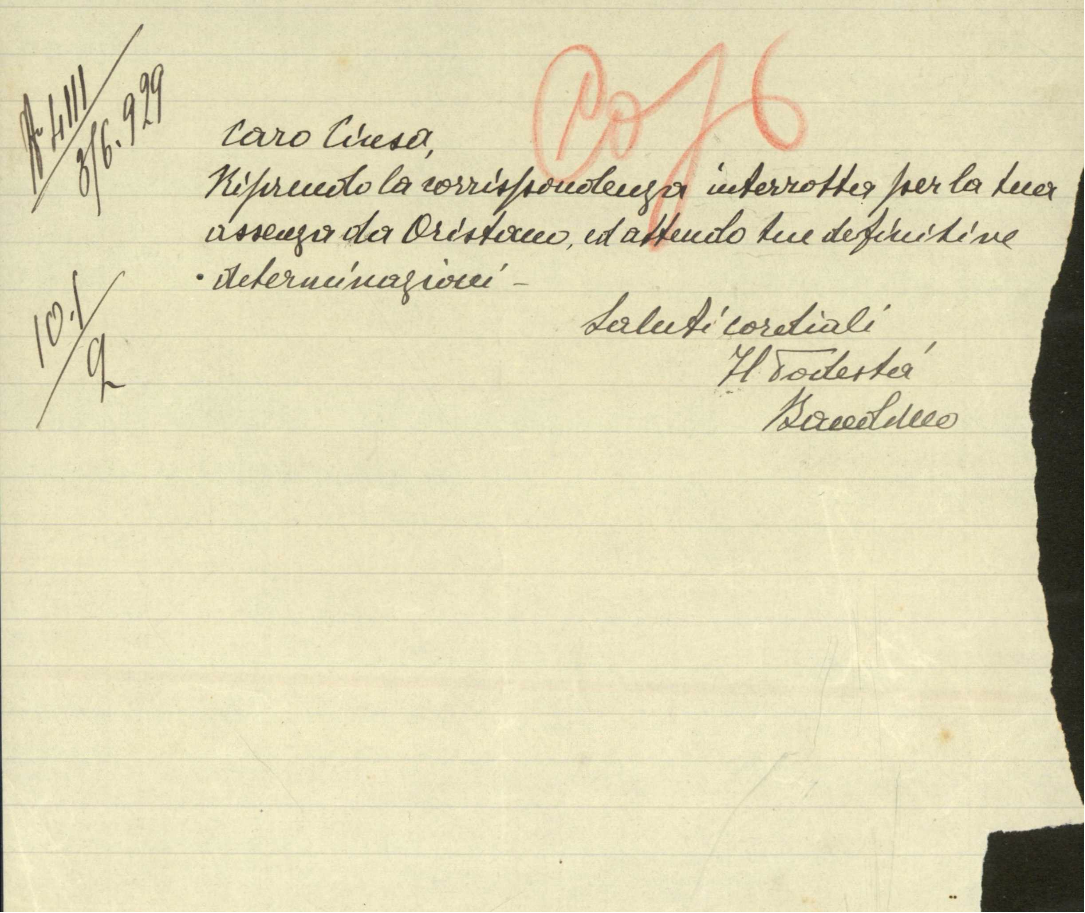 N. 4111
3/6.929
Caro Ciusa,
Riprendo la corrispondenza interrotta per la tua
assenza da Oristano, ed attendo tue definitive
determinazioni -
10.1
9
Saluti cordiali
Il Podestà